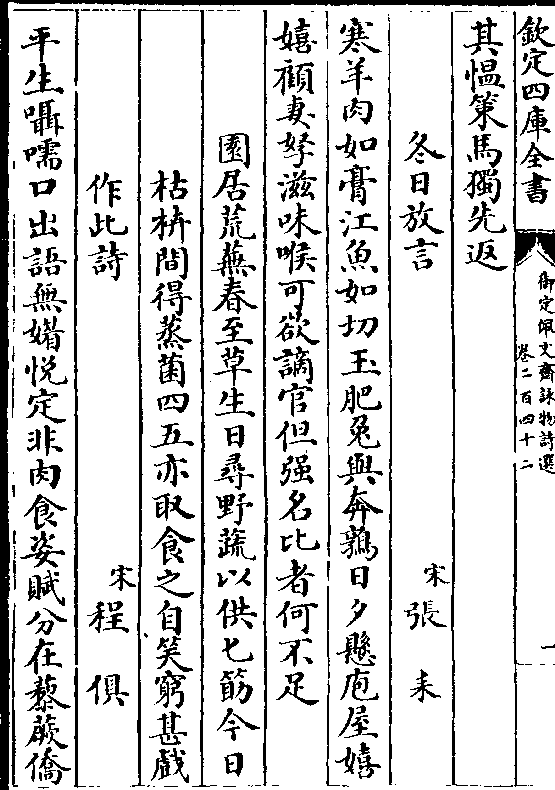 欽定四庫全書
御定佩文齋詠物詩選
卷二百四十二
一
其愠策馬獨先返
冬日放言
宋張耒
寒羊肉如膏江魚如切玉肥兔與奔鶉日夕懸庖屋嬉
嬉顧妻孥滋味喉可欲謫官但强名比者何不足
園居荒蕪春至草生日尋野蔬以供匕筯今日
枯枿間得蒸菌四五亦取食之自笑窮甚戲
作此詩
宋程俱
平生囁嚅口出語無媚悦定非肉食姿賦分在藜蕨僑